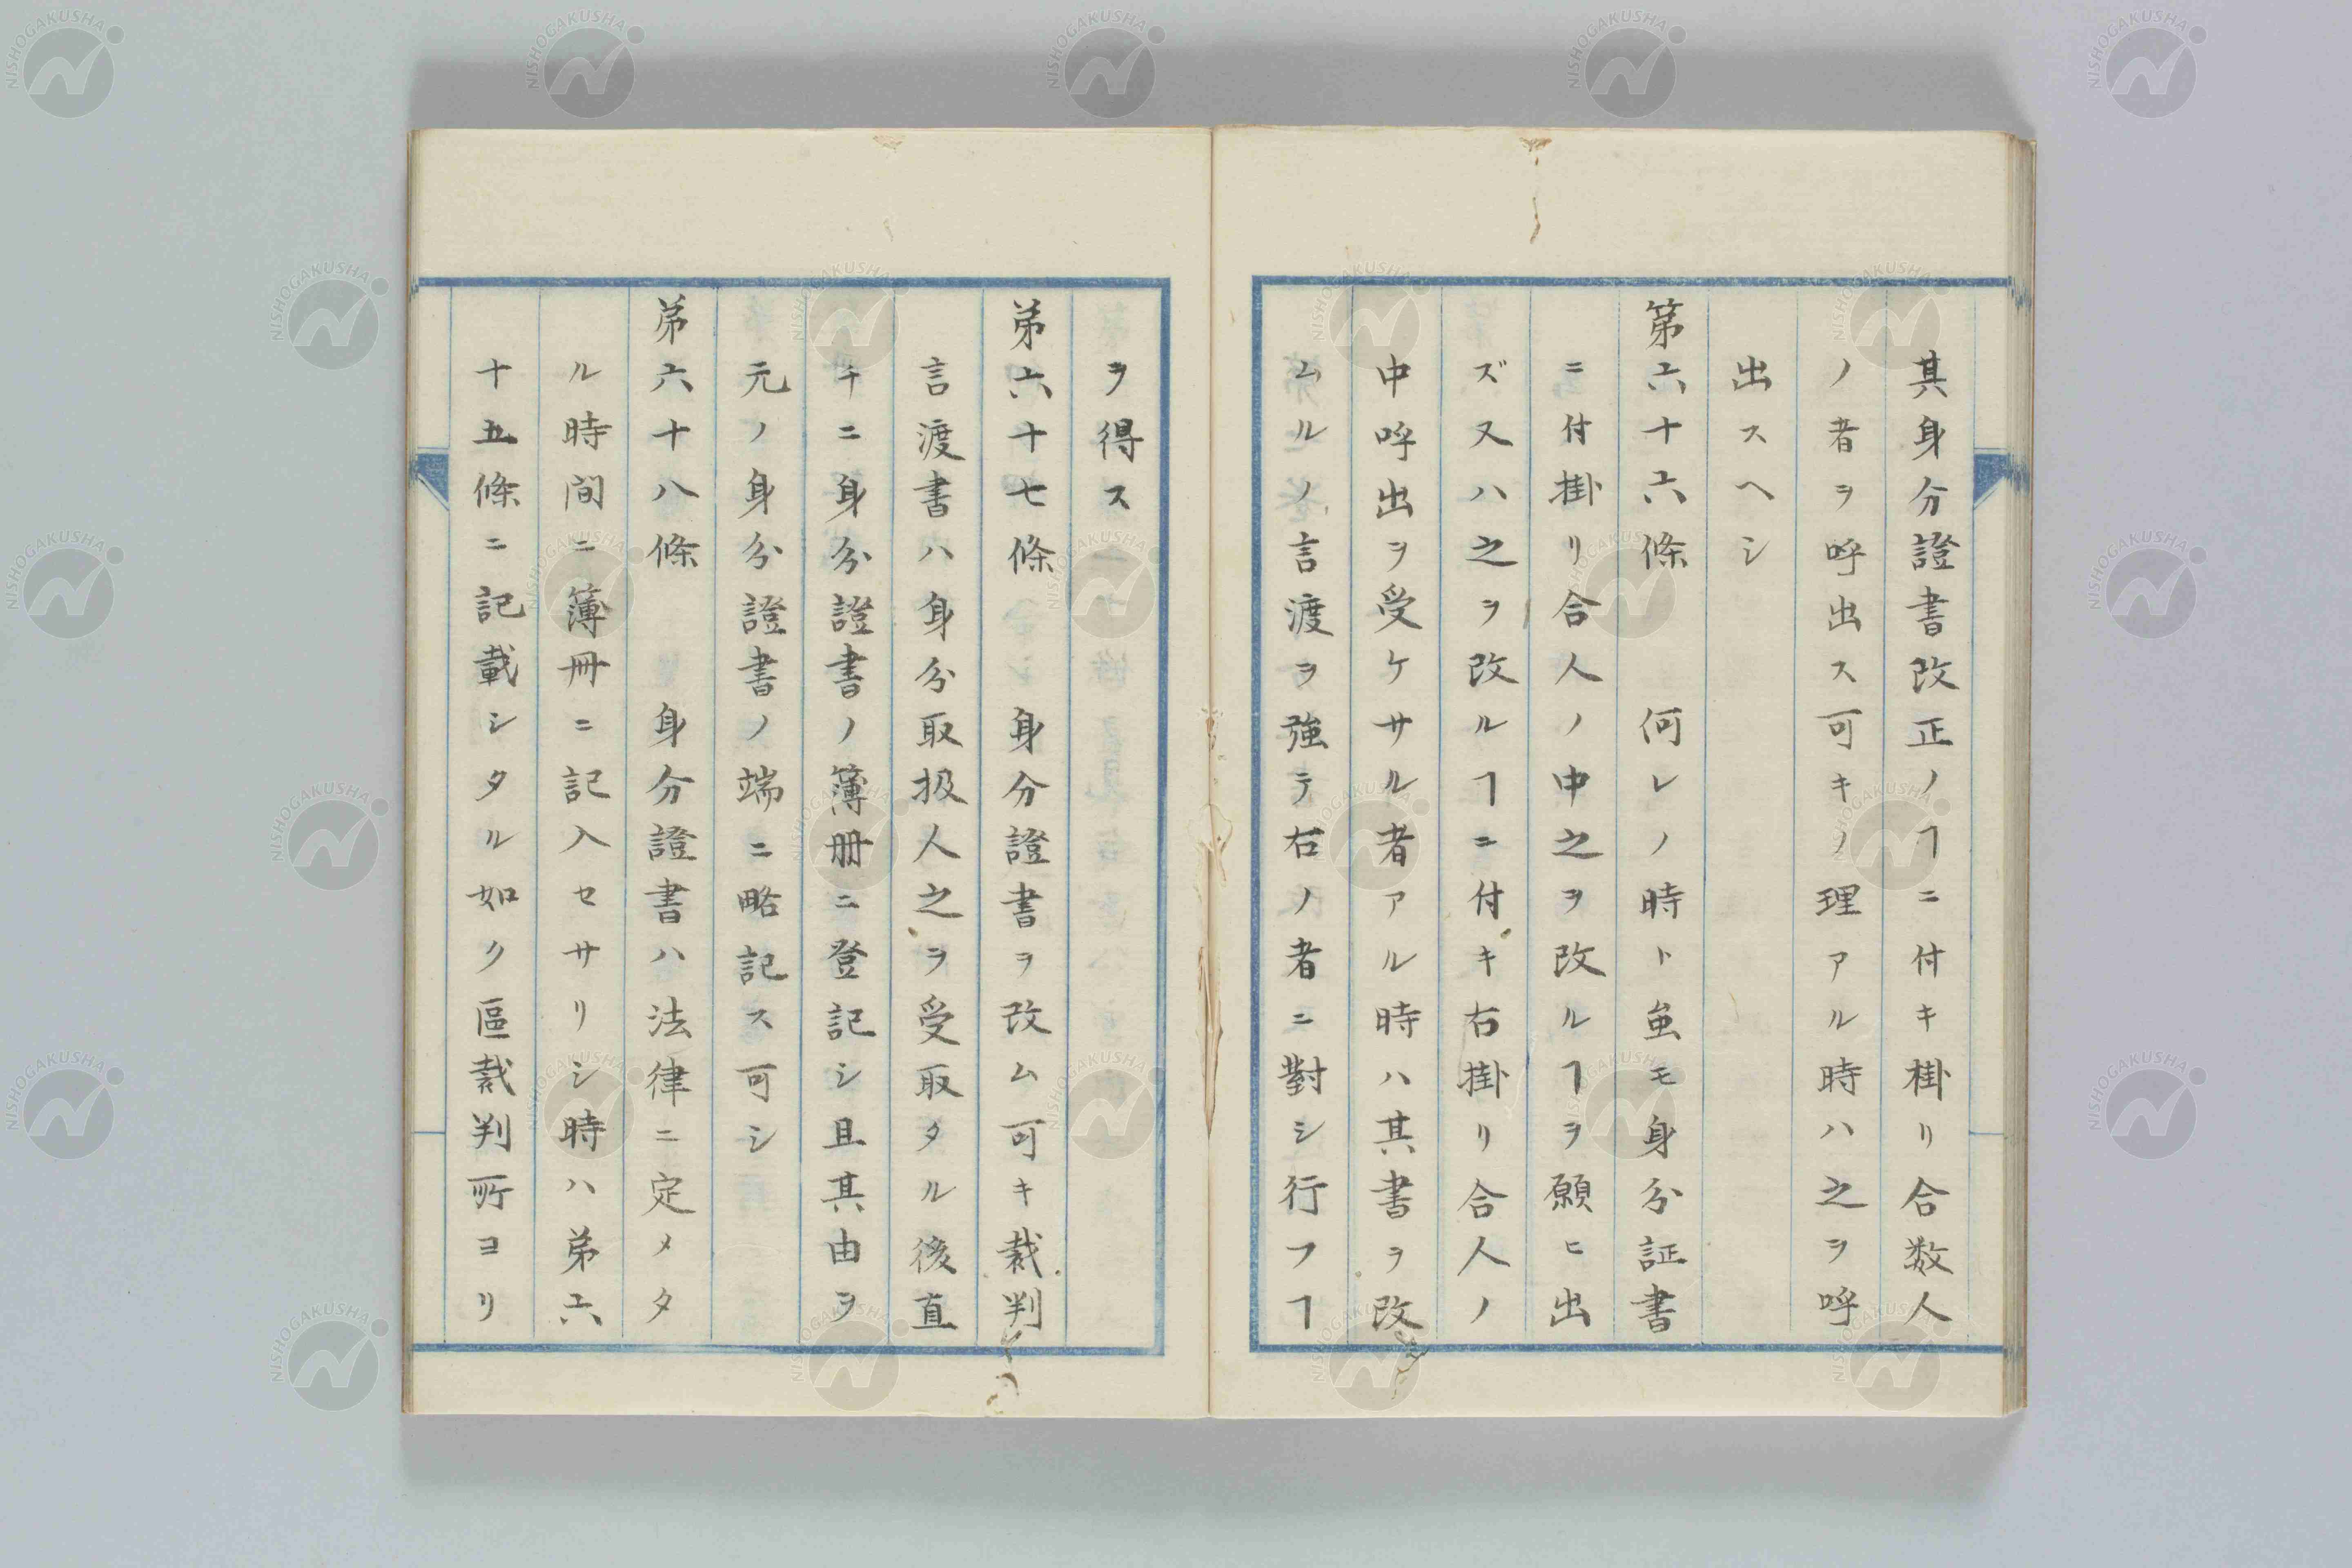 其身分證書改正ノヿニ付キ掛リ合数人
ノ者ヲ呼出ス可キノ理アル時ハ之ヲ呼
出スヘシ
第六十六條　何レノ時ト虽モ身分証書
ニ付掛リ合人ノ中之ヲ改ルヿヲ願ヒ出
ズ又ハ之ヲ改ルヿニ付キ右掛リ合人ノ
中呼出ヲ受ケサル者アル時ハ其書ヲ改
ムルノ言渡ヲ強テ右ノ者ニ對シ行フヿ
ヲ得ス
苐六十七條　身分證書ヲ改ム可キ裁判
言渡書ハ身分取扱人之ヲ受取タル後直
チニ身分證書ノ簿冊ニ登記シ且其由ヲ
元ノ身分證書ノ端ニ略記ス可シ
苐六十八條　身分證書ハ法律ニ定メタ
ル時間ニ簿冊ニ記入セサリシ時ハ苐六
十五條ニ記載シタル如ク區裁判所ヨリ
NISHOGAKUSHA